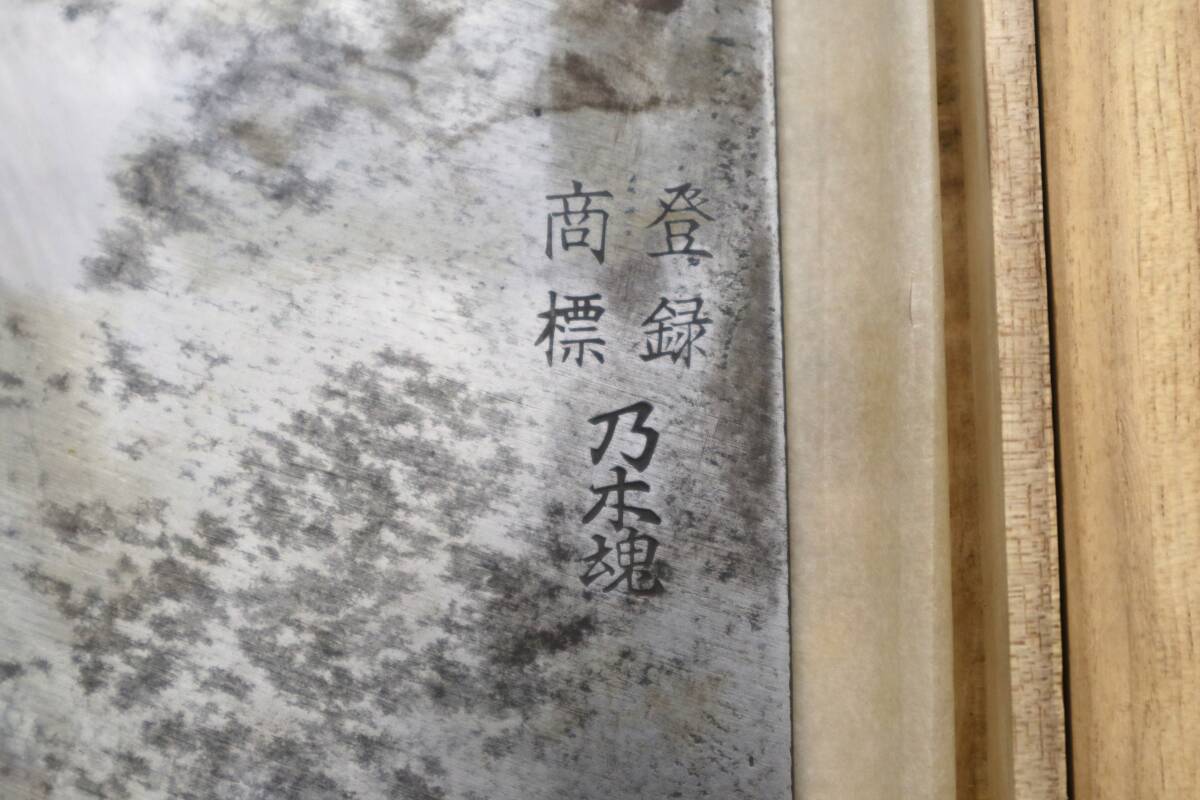 登録
商標
乃木魂